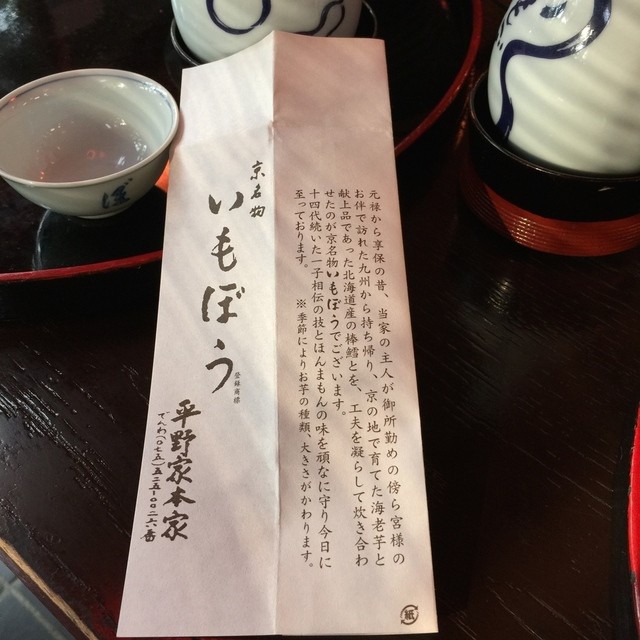 元禄から享保の昔、当家の主人が御所勤めの傍ら宮様の
お伴で訪れた九州から持ち帰り、京の地で育てた海老芋と
献上品であった北海道産の棒鱈とを、工夫を凝らして炊き合わ
せたのが京名物いもぼうでございます。
十四代続いた一子相伝の技とほんまもんの味を頑なに守り今日に
至っております。 ※季節によりお芋の種類、大きさがかわります。
京名物
いもぼう
登録商標
平野家本家
でんわ(〇七五)五二五-〇〇二六番
紙
ぼ